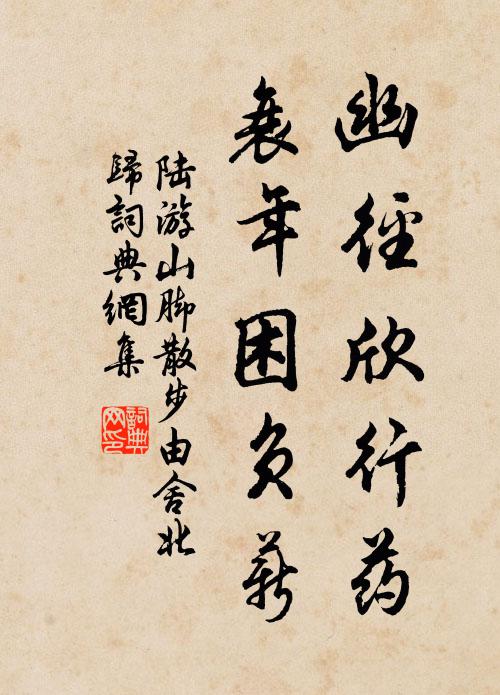 幽徑欣行药
衰年困负薪
陆游山脚散步由舍北
歸詞典網集
詞典
网印